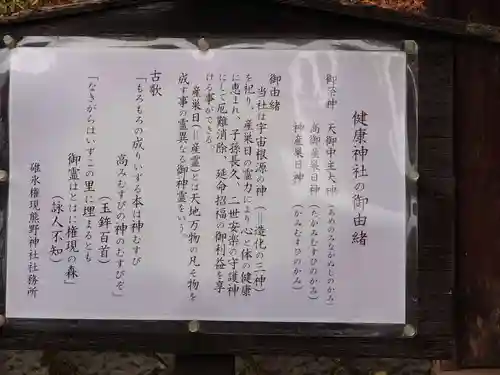 健康神社の御由緒
御祭神　天御中主大神（あめのみなかぬしのかみ）
高御産巣日神（たかみむすびのかみ）
神産巣日神（かみむすびのかみ）
御由緒
当社は宇宙根源の神（＝造化の三神）
を祀り、産巣日の霊力により心と体の健康
に恵まれ、子孫長久、二世安楽の守護神
にして厄難消除、延命招福の御利益を享
ける事ができる。
産巣日（＝産霊）とは天地万物の凡そ物を
成す事の霊異なる御神霊をいう。
古歌
「もろもろの成りいずる本は神むすび
高みむすびの神のむすびぞ」
（玉鉾百首）
「なきがらはいずこの里に埋まるとも
御霊はとはに権現の森」
（詠人不知）
碓氷権現熊野神社社務所